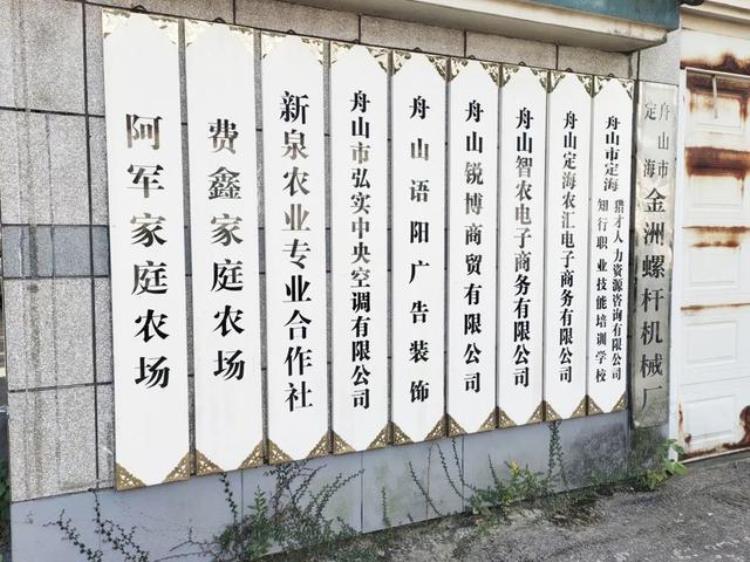 阿军家庭农场
费鑫家庭农场
新泉农业专业合作社
舟山市弘实中央空调有限公司
舟山语阳广告装饰
舟山锐博商贸有限公司
舟山智农电子商务有限公司
舟山定海农汇电子商务有限公司
舟山市定海
猎才人力资源咨询有限公司
知行职业技能培训学校
舟山市
定海
金洲螺杆机械厂